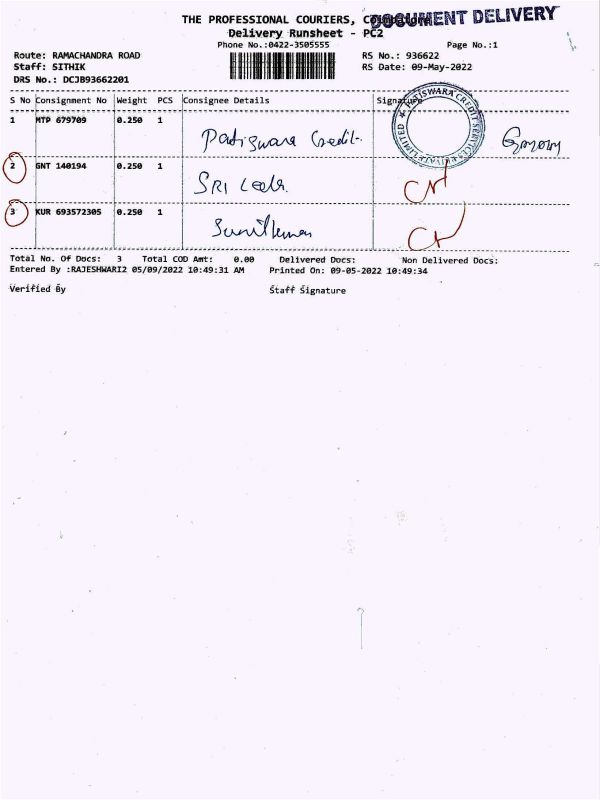 THE PROFESSIONAL COURIERS, Coimbatore
DOCUMENT DELIVERY
Delivery Runsheet - PC2
Phone No.:0422-3505555 Page No.:1
Route: RAMACHANDRA ROAD RS No.: 936622
Staff: SITHIK RS Date: 09-May-2022
DRS No.: DCJB93662201
S No Consignment No Weight PCS Consignee Details Signature
1 MTP 679709 0.250 1
Patiswara Credit.
PATISWARA CREDIT SERVICES PRIVATE LIMITED
2 GNT 140194 0.250 1
SRI
3 KUR 693572305 0.250 1
Total No. Of Docs: 3 Total COD Amt: 0.00 Delivered Docs: Non Delivered Docs:
Entered By :RAJESHWARI2 05/09/2022 10:49:31 AM Printed On: 09-05-2022 10:49:34
Verified By Staff Signature